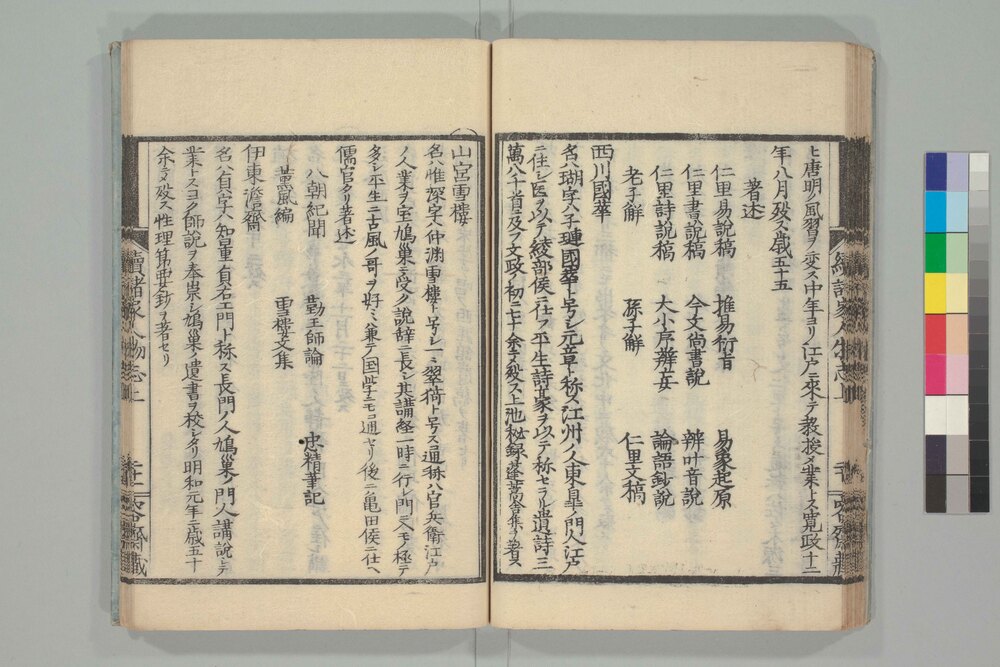 ヒ唐明ノ風習ヲ変ス中年ヨリ江戸ニ來テ教授メ業トス寛政十二
年八月歿ス歳五十五
著述
仁里易説稿 推易衍旨 易象起原
仁里書説稿 今文尚書説 辨叶音説
仁里詩説稿 大小序辨妄 論語鈔説
老子解 孫子解 仁里文稿
西川國華
名ハ瑚字ハ子璉國華ト号シ元章ト称ス江州ノ人東皐門人江戸
ニ住シ医ヲ以テ綾部侯ニ仕フ平生詩豪ヲ以テ称セラル遺詩三
萬八十首ニ及フ文政ノ初ニ七十余ニテ歿ス上池秘録蓬蒿舎集ヲ著ス
山宮雪樓
名ハ惟深字ハ仲淵雪樓ト号シ一ニ翠猗ト号ス通称ハ官兵衛江戸
ノ人業ヲ室鳩巣ニ受ク説辞ニ長シ其講経一時ニ行レ門人モ極テ
多シ平生ニ古風ノ哥ヲ好ミ兼テ国学ニモ通セリ後ニ亀田侯ニ仕ヘ
儒官タリ著述
八朝紀聞 勤王師論 忠精筆記
薫風編 雪樓文集
伊東澹齋
名ハ貞字ハ知量貞右エ門ト称ス長門ノ人鳩巣ノ門人講説ヲ
業トスヨク師説ヲ奉崇シ鳩巣ノ遺書ヲ校シタリ明和元年ニ歳五十
余ニテ歿ス性理筆要鈔ヲ著セリ
續諸家人物志上